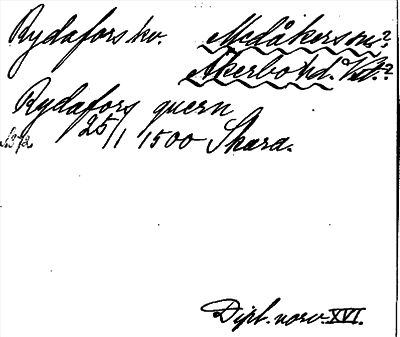 Rydafors kv. Medåkers sn?
Åkerbo hd. Vstm.?
Rydafors quern
25/1 1500 Skara.
Dipl. norv. XVI.